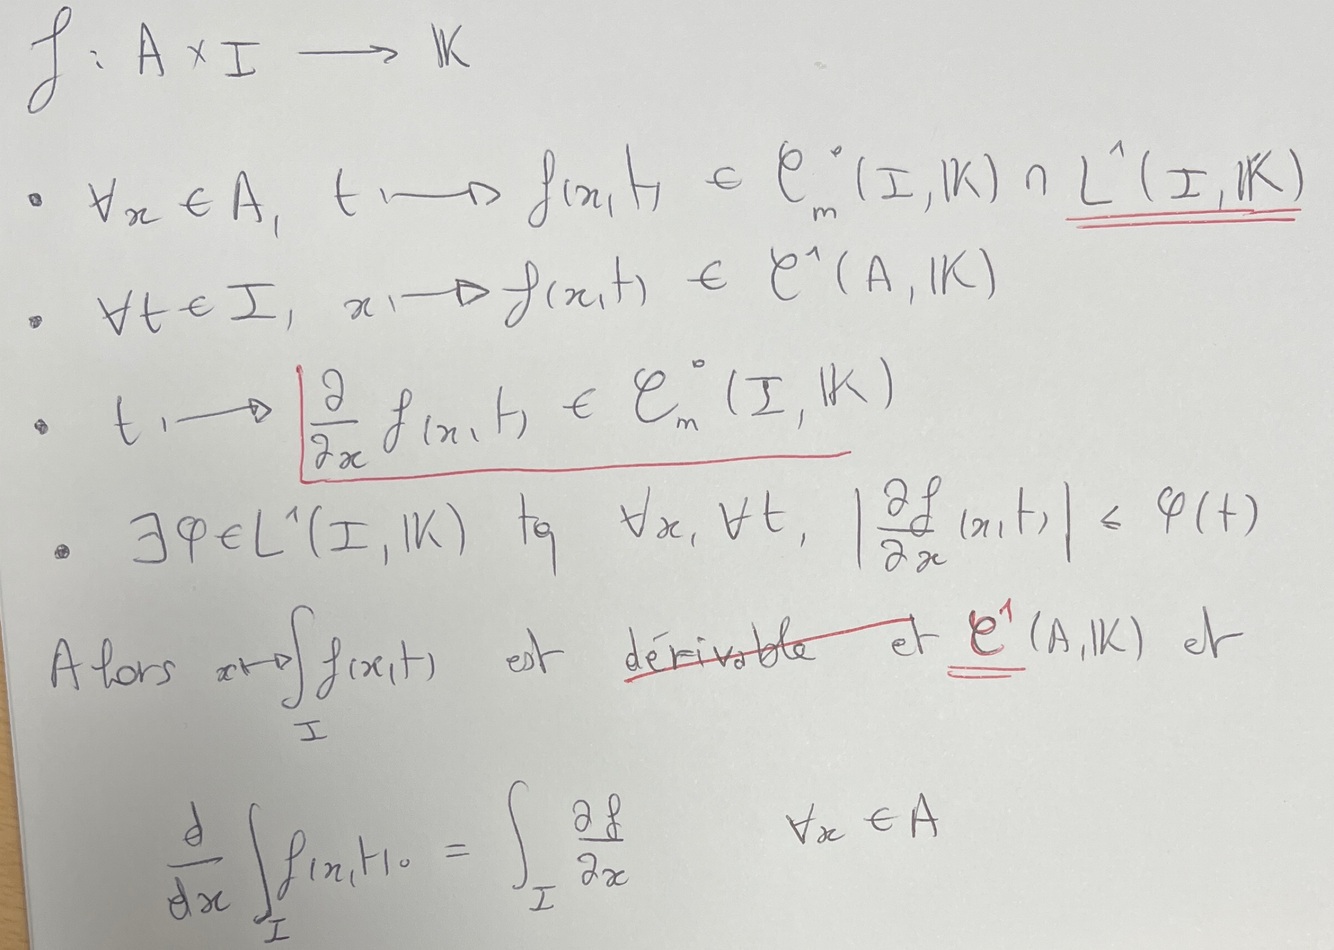 f : A × I ⟶ 𝕂
• ∀x ∈ A, t ⟼ f(x,t) ∈ 𝒞⁰ₘ(I,𝕂) ∩ L¹(I,𝕂)
• ∀t ∈ I, x ⟼ f(x,t) ∈ 𝒞¹(A,𝕂)
• t ⟼ ∂/∂x f(x,t) ∈ 𝒞⁰ₘ(I,𝕂)
• ∃φ∈L¹(I,𝕂) tq ∀x, ∀t, |∂f/∂x (x,t)| ≤ φ(t)
Alors x⟼∫_I f(x,t) est dérivable et 𝒞¹(A,𝕂) et
d/dx ∫_I f(x,t). = ∫_I ∂f/∂x ∀x ∈ A